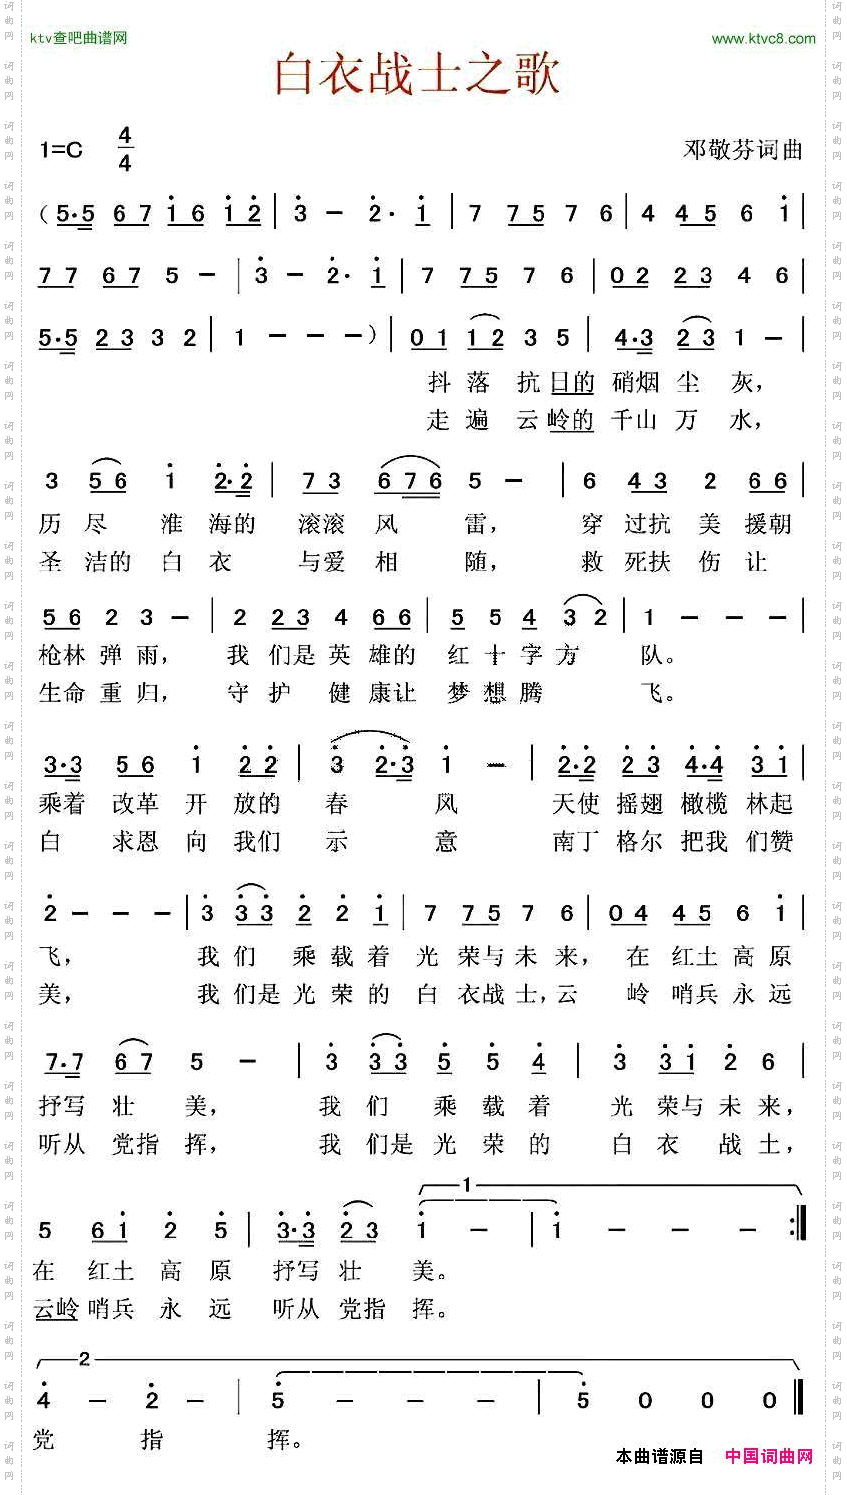 ktv查吧曲谱网
www.ktvc8.com
白衣战士之歌
1=C 4/4
邓敬芬词曲
（5·5 67 i6 i2 | 3 – 2· i | 7 75 7 6 | 4 45 6 i |
77 67 5 – | 3 – 2· i | 7 75 7 6 | 02 23 4 6 |
5·5 23 3 2 | 1 – – –） | 01 12 3 5 | 4·3 23 1 – |
抖落抗日的硝烟尘灰，
走遍云岭的千山万水，
3 56 i 2·2 | 73 676 5 – | 6 43 2 66 |
历尽淮海的滚滚风雷，穿过抗美援朝
圣洁的白衣与爱相随，救死扶伤让
56 2 3 – | 2 23 4 66 | 5 5 4 32 | 1 – – – |
枪林弹雨，我们是英雄的红十字方队。
生命重归，守护健康让梦想腾飞。
3·3 56 i 22 | 3 2·3 i – | 2·2 23 4·4 3i |
乘着改革开放的春风天使摇翅橄榄林起
白求恩向我们示意南丁格尔把我们赞
2 – – – | 3 33 2 2 i | 7 75 7 6 | 04 45 6 i |
飞，我们乘载着光荣与未来，在红土高原
美，我们是光荣的白衣战士，云岭哨兵永远
7·7 67 5 – | 3 33 5 5 4 | 3 3i 2 6 |
抒写壮美，我们乘载着光荣与未来，
听从党指挥，我们是光荣的白衣战士，
1
5 6i 2 5 | 3·3 23 i – | i – – – :‖
在红土高原抒写壮美。
云岭哨兵永远听从党指挥。
2
4 – 2 – | 5 – – – | 5 0 0 0 ‖
党指挥。
本曲谱源自 中国词曲网